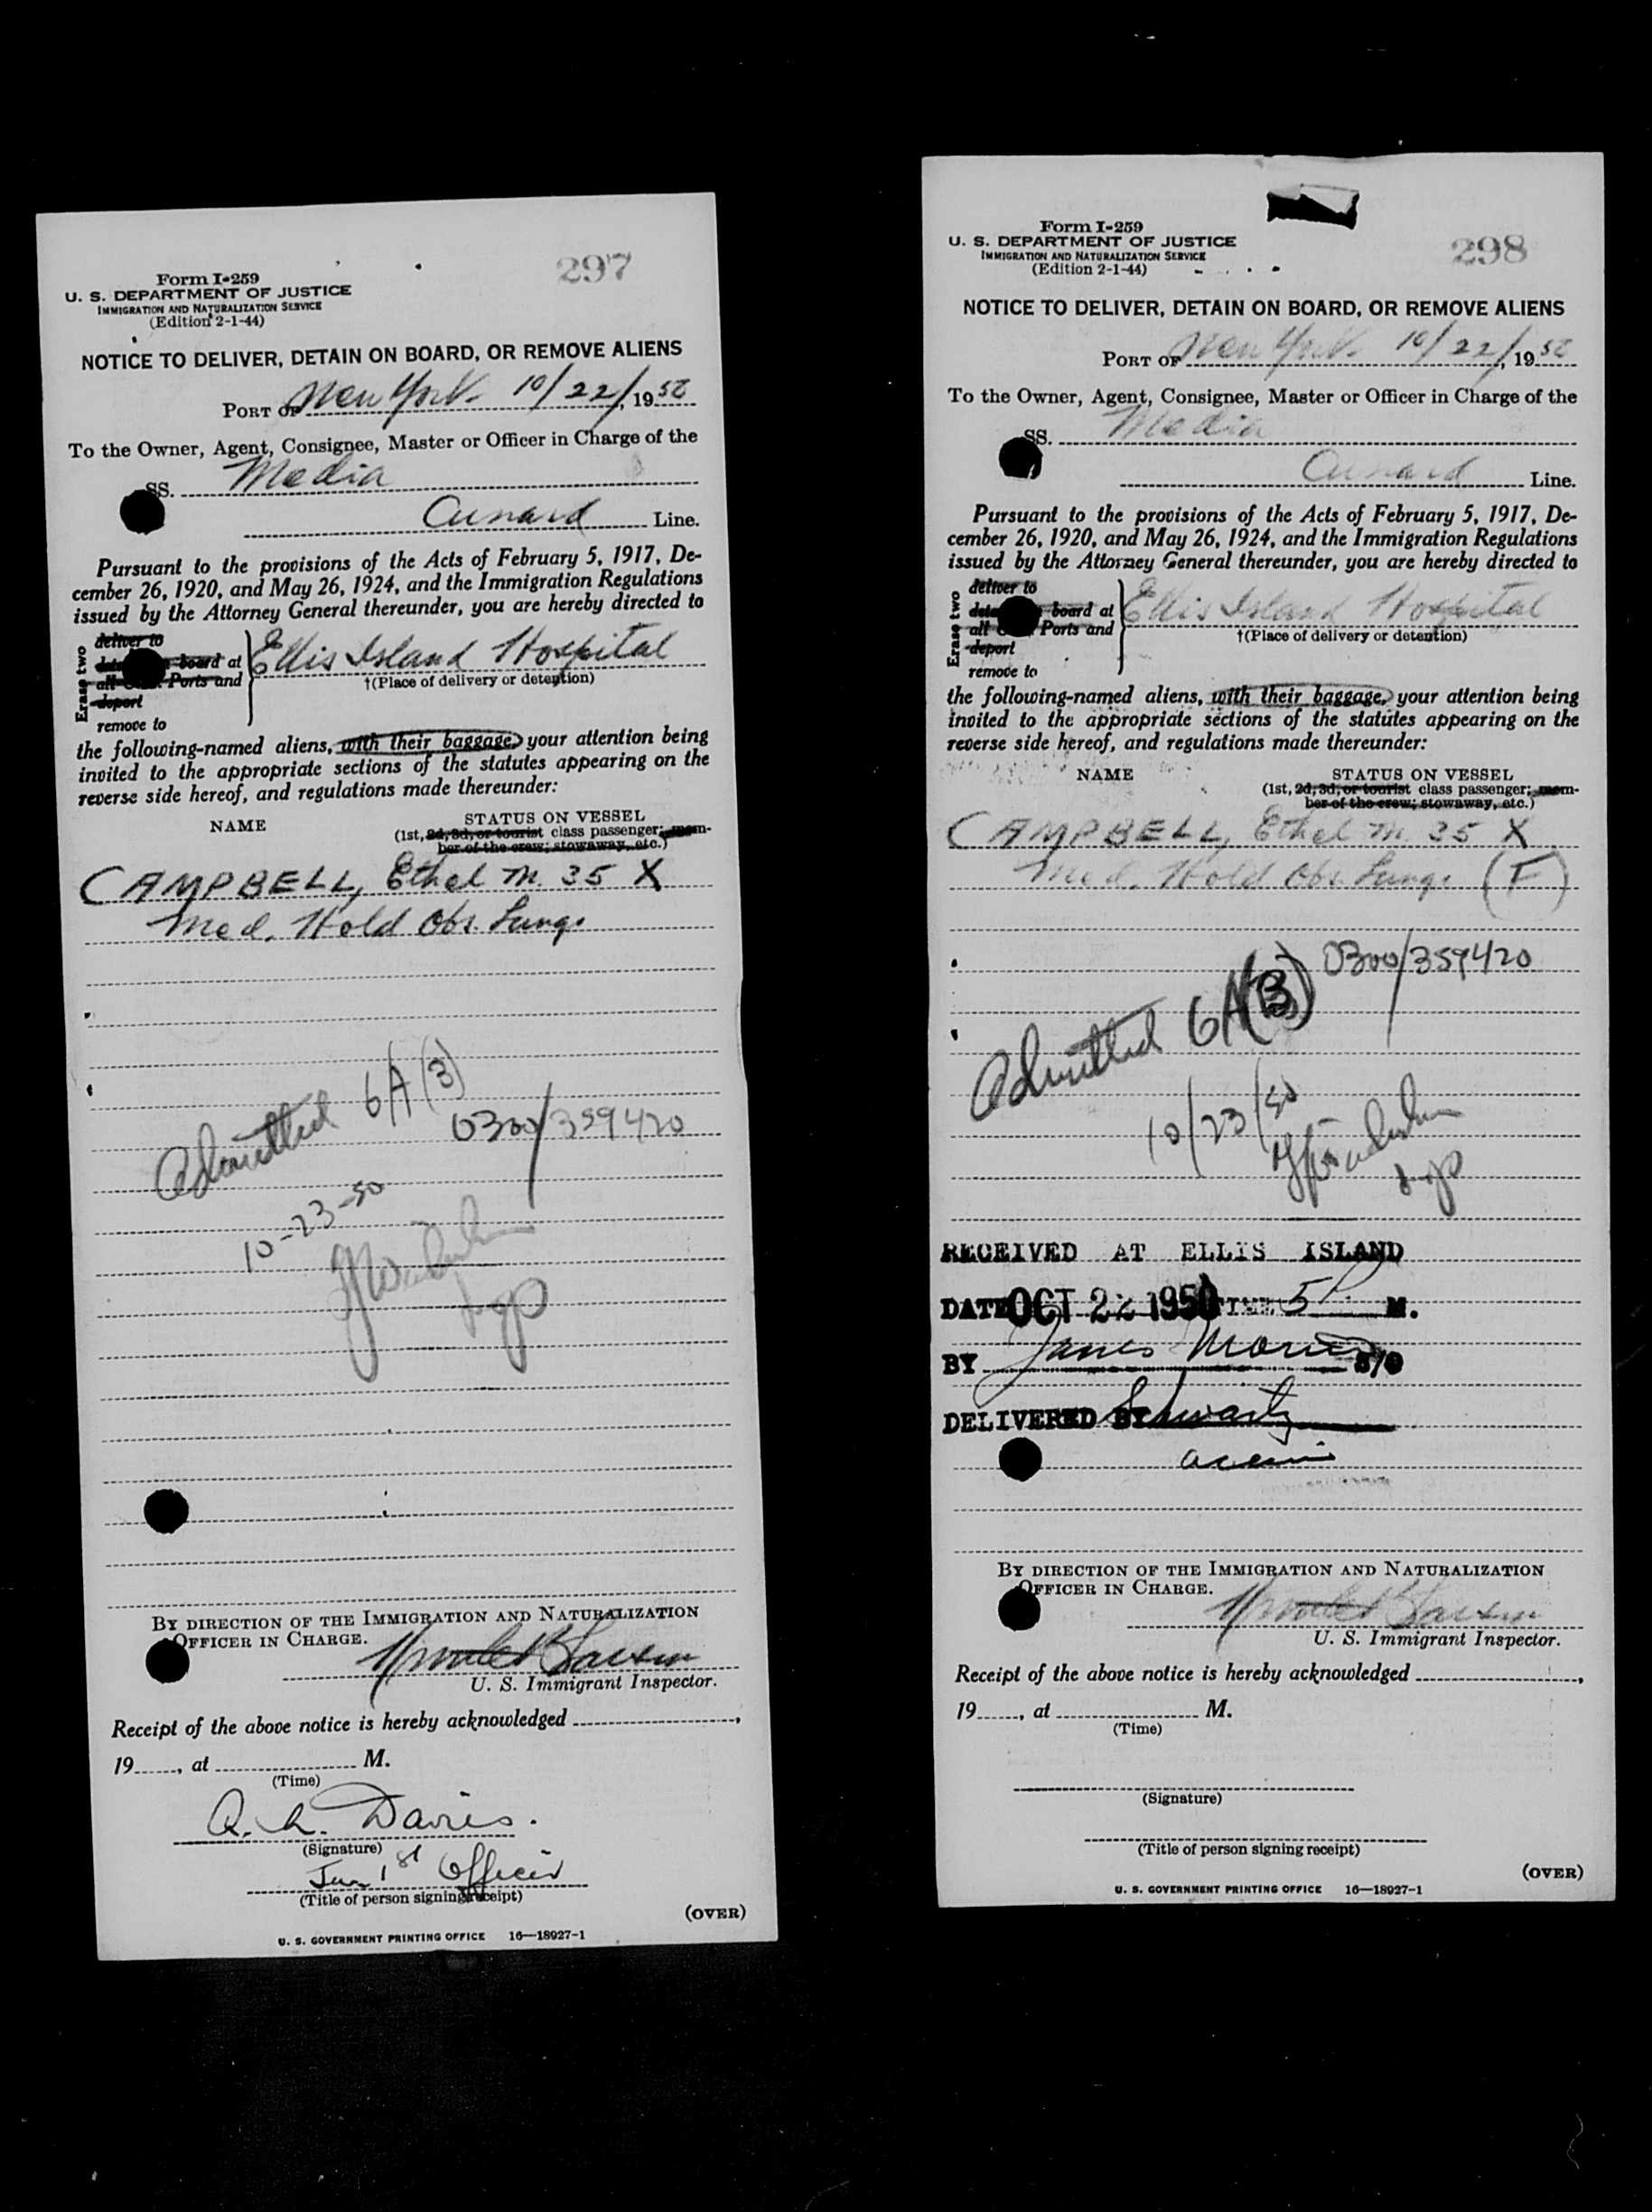 297
Form I-259
U. S. DEPARTMENT OF JUSTICE
IMMIGRATION AND NATURALIZATION SERVICE
(Edition 2-1-44)
NOTICE TO DELIVER, DETAIN ON BOARD, OR REMOVE ALIENS
PORT OF New York 10/22/, 1950
To the Owner, Agent, Consignee, Master or Officer in Charge of the
SS. Media
Cunard Line.
Pursuant to the provisions of the Acts of February 5, 1917, De-
cember 26, 1920, and May 26, 1924, and the Immigration Regulations
issued by the Attorney General thereunder, you are hereby directed to
Erase two
deliver to
board at
all Ports and
deport
remove to
Ellis Island Hospital
†(Place of delivery or detention)
the following-named aliens, with their baggage, your attention being
invited to the appropriate sections of the statutes appearing on the
reverse side hereof, and regulations made thereunder:
NAME STATUS ON VESSEL
(1st, 2d, 3d, or tourist class passenger; mem-
ber of the crew; stowaway, etc.)
CAMPBELL, Ethel M. 35 X
Med. Hold Obs. Lungs
Admitted 6A(3)
0300/359420
10-23-50
BY DIRECTION OF THE IMMIGRATION AND NATURALIZATION
OFFICER IN CHARGE.
U. S. Immigrant Inspector.
Receipt of the above notice is hereby acknowledged ,
19 , at M.
(Time)
Davies.
(Signature)
Jun 1st Officer
(Title of person signing receipt)
(OVER)
U. S. GOVERNMENT PRINTING OFFICE 16—18927-1
298
Form I-259
U. S. DEPARTMENT OF JUSTICE
IMMIGRATION AND NATURALIZATION SERVICE
(Edition 2-1-44)
NOTICE TO DELIVER, DETAIN ON BOARD, OR REMOVE ALIENS
PORT OF New York 10/22/, 1950
To the Owner, Agent, Consignee, Master or Officer in Charge of the
SS. Media
Cunard Line.
Pursuant to the provisions of the Acts of February 5, 1917, De-
cember 26, 1920, and May 26, 1924, and the Immigration Regulations
issued by the Attorney General thereunder, you are hereby directed to
Erase two
deliver to
board at
all Ports and
deport
remove to
Ellis Island Hospital
†(Place of delivery or detention)
the following-named aliens, with their baggage, your attention being
invited to the appropriate sections of the statutes appearing on the
reverse side hereof, and regulations made thereunder:
NAME STATUS ON VESSEL
(1st, 2d, 3d, or tourist class passenger; mem-
ber of the crew; stowaway, etc.)
CAMPBELL, Ethel M. 35 X
Med. Hold Obs. Lungs (F)
0300/359420
Admitted 6A(3)
10/23/50
RECEIVED AT ELLIS ISLAND
DATE OCT 22 1950 TIME 5 P. M.
BY James
DELIVERED BY Schwartz
BY DIRECTION OF THE IMMIGRATION AND NATURALIZATION
OFFICER IN CHARGE.
U. S. Immigrant Inspector.
Receipt of the above notice is hereby acknowledged ,
19 , at M.
(Time)
(Signature)
(Title of person signing receipt)
(OVER)
U. S. GOVERNMENT PRINTING OFFICE 16—18927-1